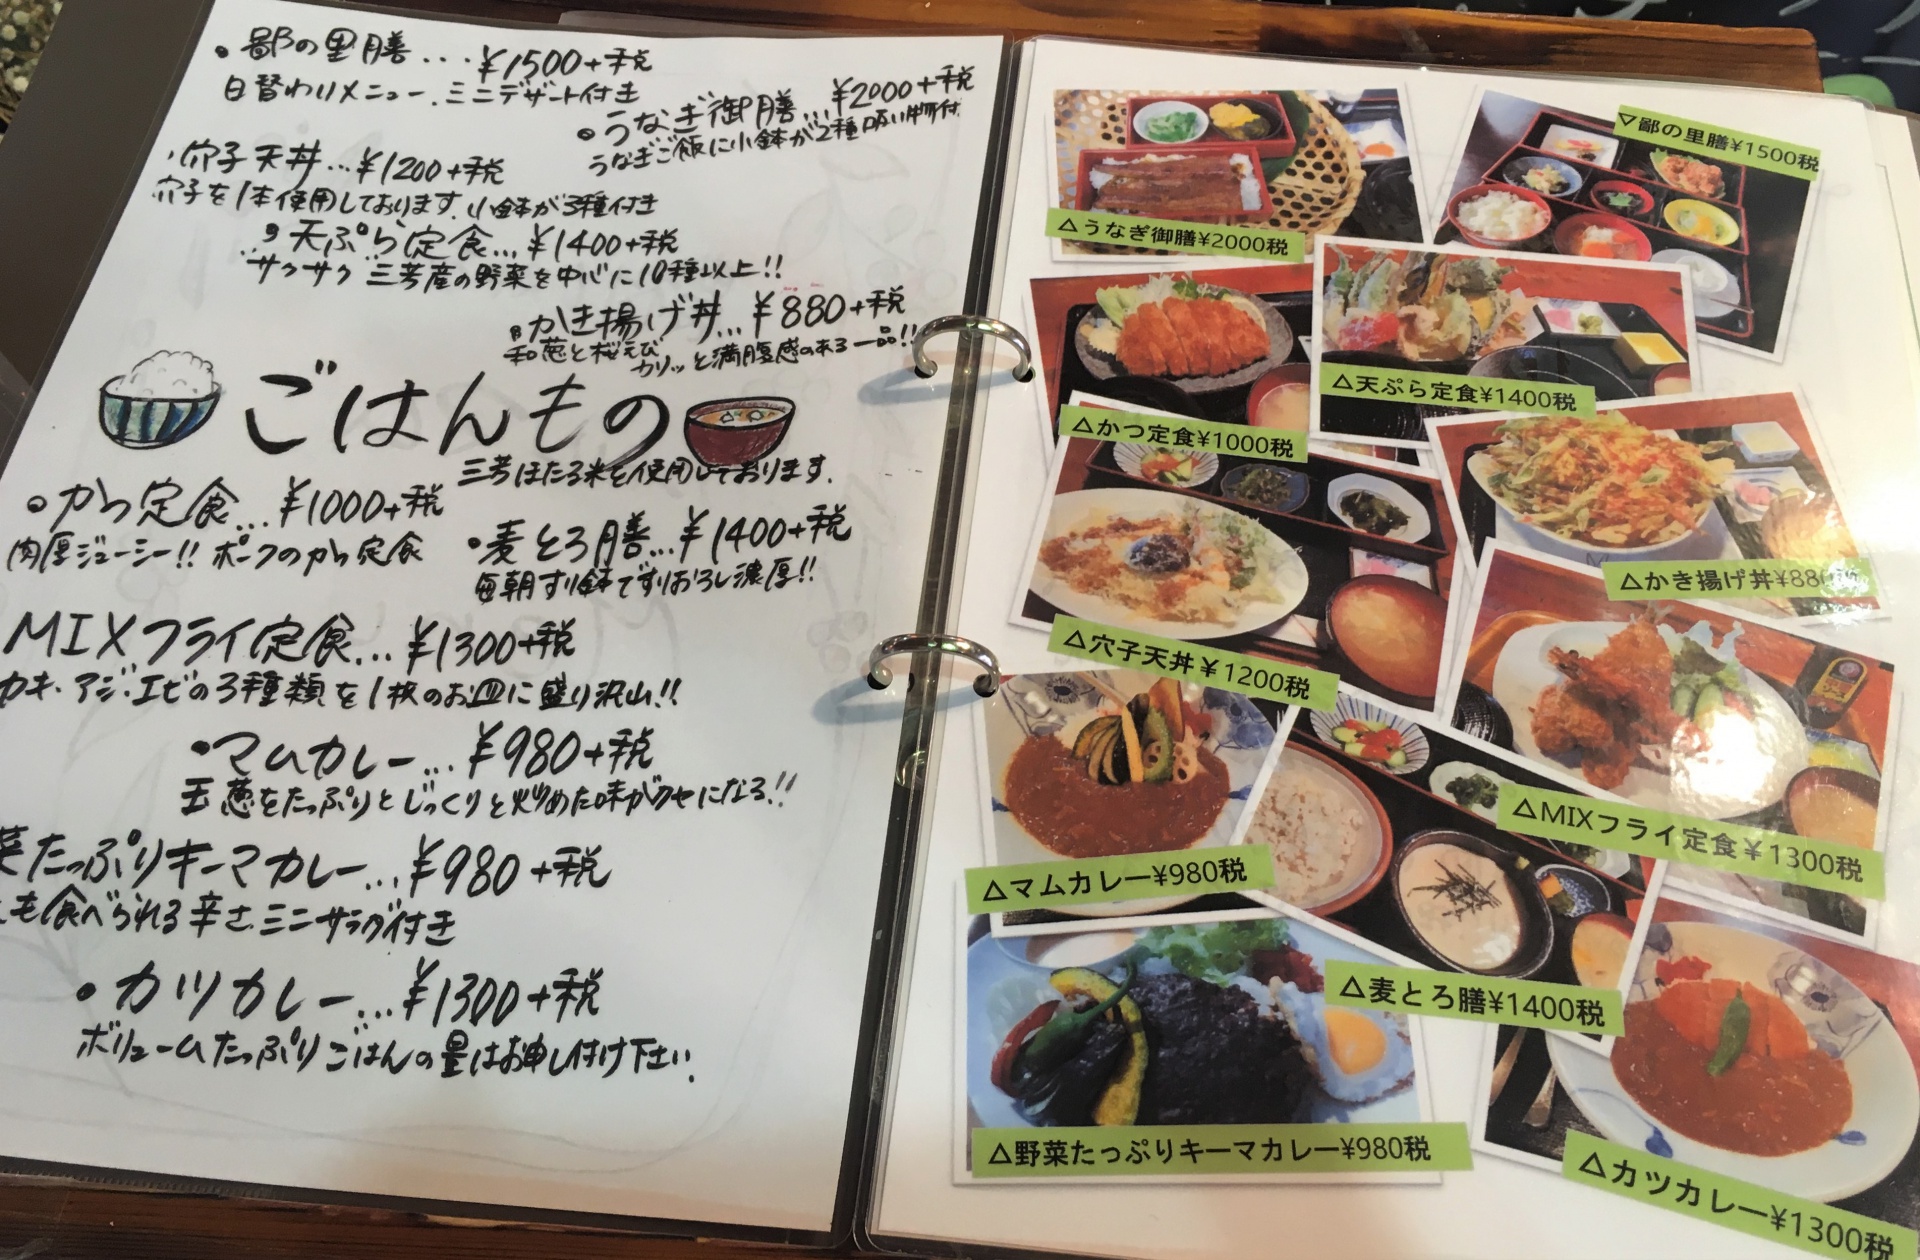 ・鄙の里膳...¥1500+税
日替わりメニュー.ミニデザート付き
・うなぎ御膳...¥2000+税
うなぎご飯に小鉢が2種吸い物付
・穴子天丼...¥1200+税
穴子を1本使用しております.小鉢が3種付き
・天ぷら定食...¥1400+税
サクサク 三芳産の野菜を中心に10種以上!!
・かき揚げ丼...¥880+税
和葱と桜えび
カリッと満腹感のある一品!!
ごはんもの
三芳ほたる米を使用しております.
・かつ定食...¥1000+税
肉厚ジューシー!! ポークのかつ定食
・麦とろ膳...¥1400+税
毎朝すり鉢ですりおろし濃厚!!
MIXフライ定食...¥1300+税
カキ・アジ・エビの3種類を1枚のお皿に盛り沢山!!
・マムカレー...¥980+税
玉葱をたっぷりとじっくりと炒めた味がクセになる!!
菜たっぷりキーマカレー...¥980+税
も食べられる辛さ.ミニサラダ付き
・カツカレー...¥1300+税
ボリュームたっぷりごはんの量はお申し付け下さい.
▽鄙の里膳¥1500税
△うなぎ御膳¥2000税
△天ぷら定食¥1400税
△かつ定食¥1000税
△かき揚げ丼¥880
△穴子天丼¥1200税
△MIXフライ定食¥1300税
△マムカレー¥980税
△麦とろ膳¥1400税
△野菜たっぷりキーマカレー¥980税
△カツカレー¥1300税